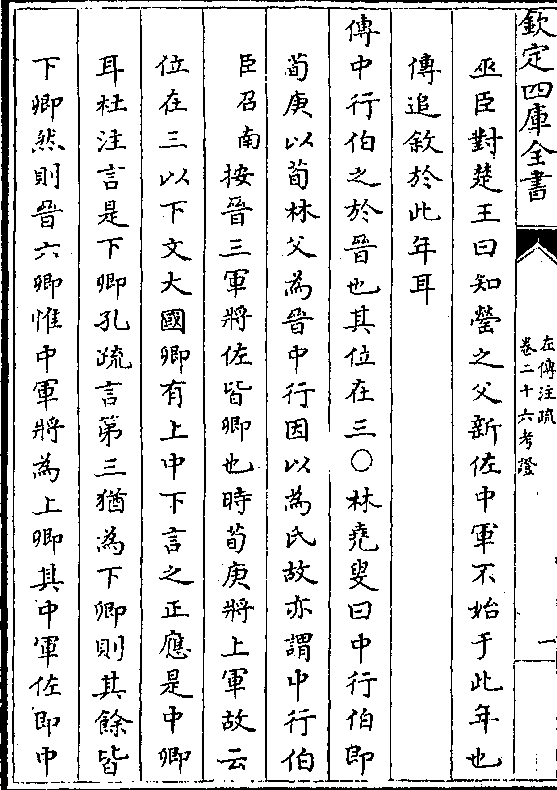 欽定四庫全書
左傳注疏
卷二十六考證
一
巫臣對楚王曰知罃之父新佐中軍不始于此年也
傳追敘於此年耳
傳中行伯之於晉也其位在三○林堯叟曰中行伯即
荀庚以荀林父為晉中行因以為氏故亦謂中行伯
臣召南按晉三軍將佐皆卿也時荀庚將上軍故云
位在三以下文大國卿有上中下言之正應是中卿
耳杜注言是下卿孔疏言第三猶為下卿則其餘皆
下卿然則晉六卿惟中軍將為上卿其中軍佐即中